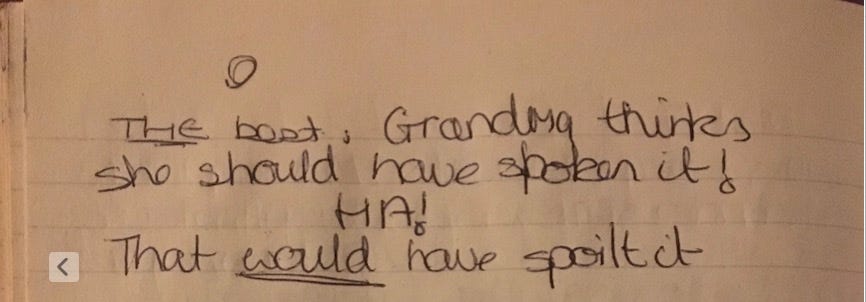 THE best, Grandma thinks
she should have spoken it!
HA!
That would have spoilt it